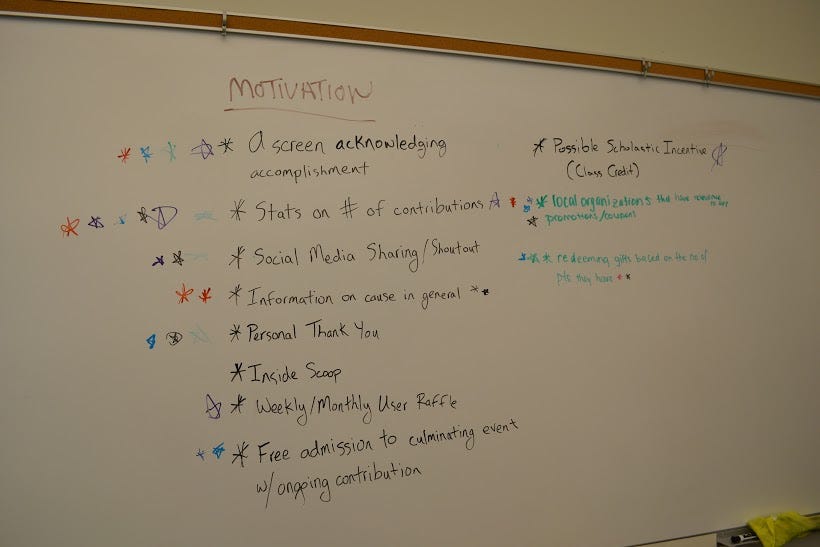 MOTIVATION
* A screen acknowledging
accomplishment
* Stats on # of contributions
* Social Media Sharing/Shoutout
* Information on cause in general **
* Personal Thank You
* Inside Scoop
* Weekly/Monthly User Raffle
* Free admission to culminating event
w/ ongoing contribution
* Possible Scholastic Incentive
(Class Credit)
* local organizations that have
* promotions/coupons
* redeeming gifts based on the no of
pts they have **